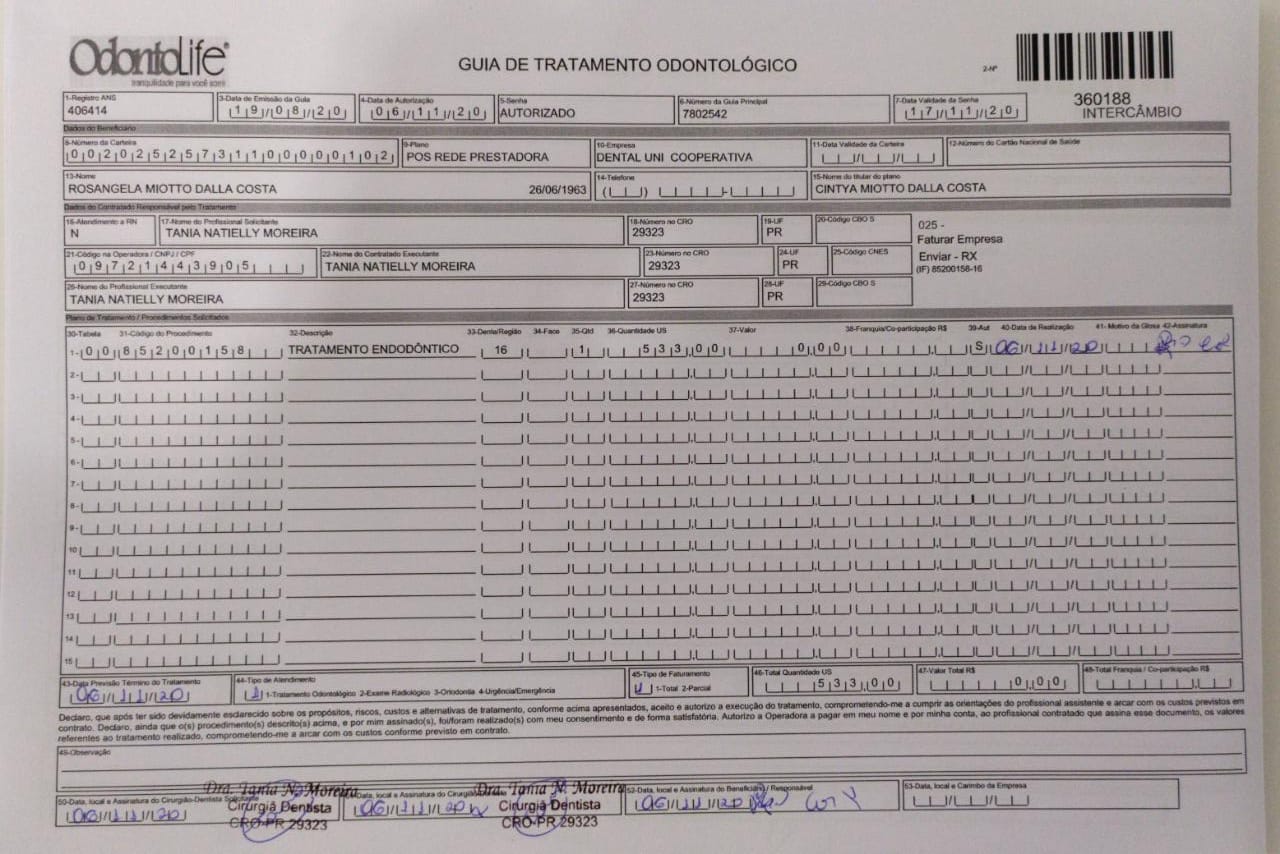 OdontoLife®
tranquilidade para você sorrir
GUIA DE TRATAMENTO ODONTOLÓGICO
2-Nº
360188
INTERCÂMBIO
1-Registro ANS
406414
3-Data de Emissão da Guia
19/08/20
4-Data de Autorização
06/11/20
5-Senha
AUTORIZADO
6-Número da Guia Principal
7802542
7-Data Validade da Senha
17/11/20
Dados do Beneficiário
8-Número da Carteira
00202525731100000102
9-Plano
POS REDE PRESTADORA
10-Empresa
DENTAL UNI COOPERATIVA
11-Data Validade da Carteira
12-Número do Cartão Nacional de Saúde
13-Nome
ROSANGELA MIOTTO DALLA COSTA 26/06/1963
14-Telefone
15-Nome do titular do plano
CINTYA MIOTTO DALLA COSTA
Dados do Contratado Responsável pelo Tratamento
16-Atendimento a RN
N
17-Nome do Profissional Solicitante
TANIA NATIELLY MOREIRA
18-Número no CRO
29323
19-UF
PR
20-Código CBO S
025 -
Faturar Empresa
Enviar - RX
(IF) 85200158-16
21-Código na Operadora / CNPJ / CPF
09721443905
22-Nome do Contratado Executante
TANIA NATIELLY MOREIRA
23-Número no CRO
29323
24-UF
PR
25-Código CNES
26-Nome do Profissional Executante
TANIA NATIELLY MOREIRA
27-Número no CRO
29323
28-UF
PR
29-Código CBO S
Plano de Tratamento / Procedimentos Solicitados
30-Tabela 31-Código do Procedimento 32-Descrição 33-Dente/Região 34-Face 35-Qtd 36-Quantidade US 37-Valor 38-Franquia/Co-participação R$ 39-Aut 40-Data de Realização 41- Motivo da Glosa 42-Assinatura
1- 00 85200158 TRATAMENTO ENDODÔNTICO 16 1 533,00 0,00 S 06/11/20
2-
3-
4-
5-
6-
7-
8-
9-
10
11
12
13
14
15
43-Data Previsão Término do Tratamento
06/11/20
44-Tipo de Atendimento
1 1-Tratamento Odontológico 2-Exame Radiológico 3-Ortodontia 4-Urgência/Emergência
45-Tipo de Faturamento
1 1-Total 2-Parcial
46-Total Quantidade US
533,00
47-Valor Total R$
0,00
48-Total Franquia / Co-participação R$
Declaro, que após ter sido devidamente esclarecido sobre os propósitos, riscos, custos e alternativas de tratamento, conforme acima apresentados, aceito e autorizo a execução do tratamento, comprometendo-me a cumprir as orientações do profissional assistente e arcar com os custos previstos em
contrato. Declaro, ainda que o(s) procedimento(s) descrito(s) acima, e por mim assinado(s), foi/foram realizado(s) com meu consentimento e de forma satisfatória. Autorizo a Operadora a pagar em meu nome e por minha conta, ao profissional contratado que assina esse documento, os valores
referentes ao tratamento realizado, comprometendo-me a arcar com os custos conforme previsto em contrato.
49-Observação
50-Data, local e Assinatura do Cirurgião-Dentista Solicitante
06/11/20
Dra. Tania N. Moreira
Cirurgiã Dentista
CRO-PR 29323
51-Data, local e Assinatura do Cirurgião
06/11/20
Dra. Tania N. Moreira
Cirurgiã Dentista
CRO-PR 29323
52-Data, local e Assinatura do Beneficiário / Responsável
06/11/20
53-Data, local e Carimbo da Empresa